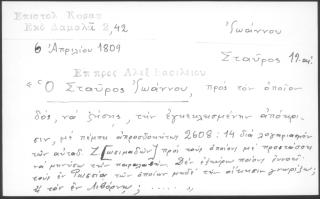 Επιστολ Κοραη
Εκδ Δαμαλα 2,42
Ἰωάννου
6 Ἀπριλίου 1809
Σταῦρος 19. αἰ.
Επ προς Αλεξ Βασιλειου
« Ὁ Σταῦρος Ἰωάννου, πρὸς τὸν ὁποῖον
δός, νὰ ζήσῃς, τὴν ἐγκεκλεισμένην ἀπόκρι-
σιν, μὲ πέμπει ἀπροσδοκήτως 2608:14 διὰ λογαριασμὸν
τῶν αὐταδ. Ζ[ωσιμαδῶν] πρὸς τοὺς ὁποίους μὲ προστάσσει
νὰ μηνύσω τὴν παραλαβήν. Δὲν ἐξεύρω ποίους ἐννοεῖ
τοὺς ἐν Ῥωσσίᾳ τῶν ὁποίων μηδὲ τὴν αἴτησιν γνωρίζω;
ἢ τὸν ἐν Λιβόρνῳ; ..... »